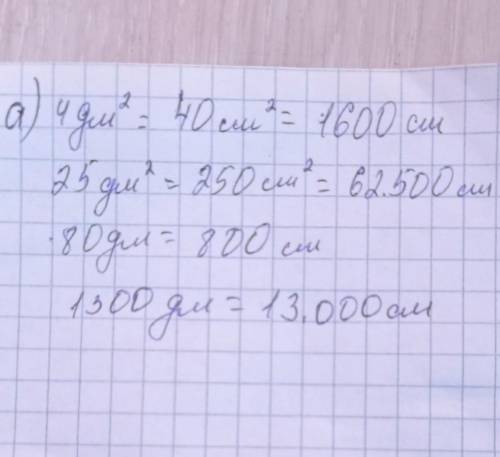 а) 4 дм² = 40 см² = 1600 см
25 дм² = 250 см² = 62.500 см
80 дм = 800 см
1300 дм = 13.000 см